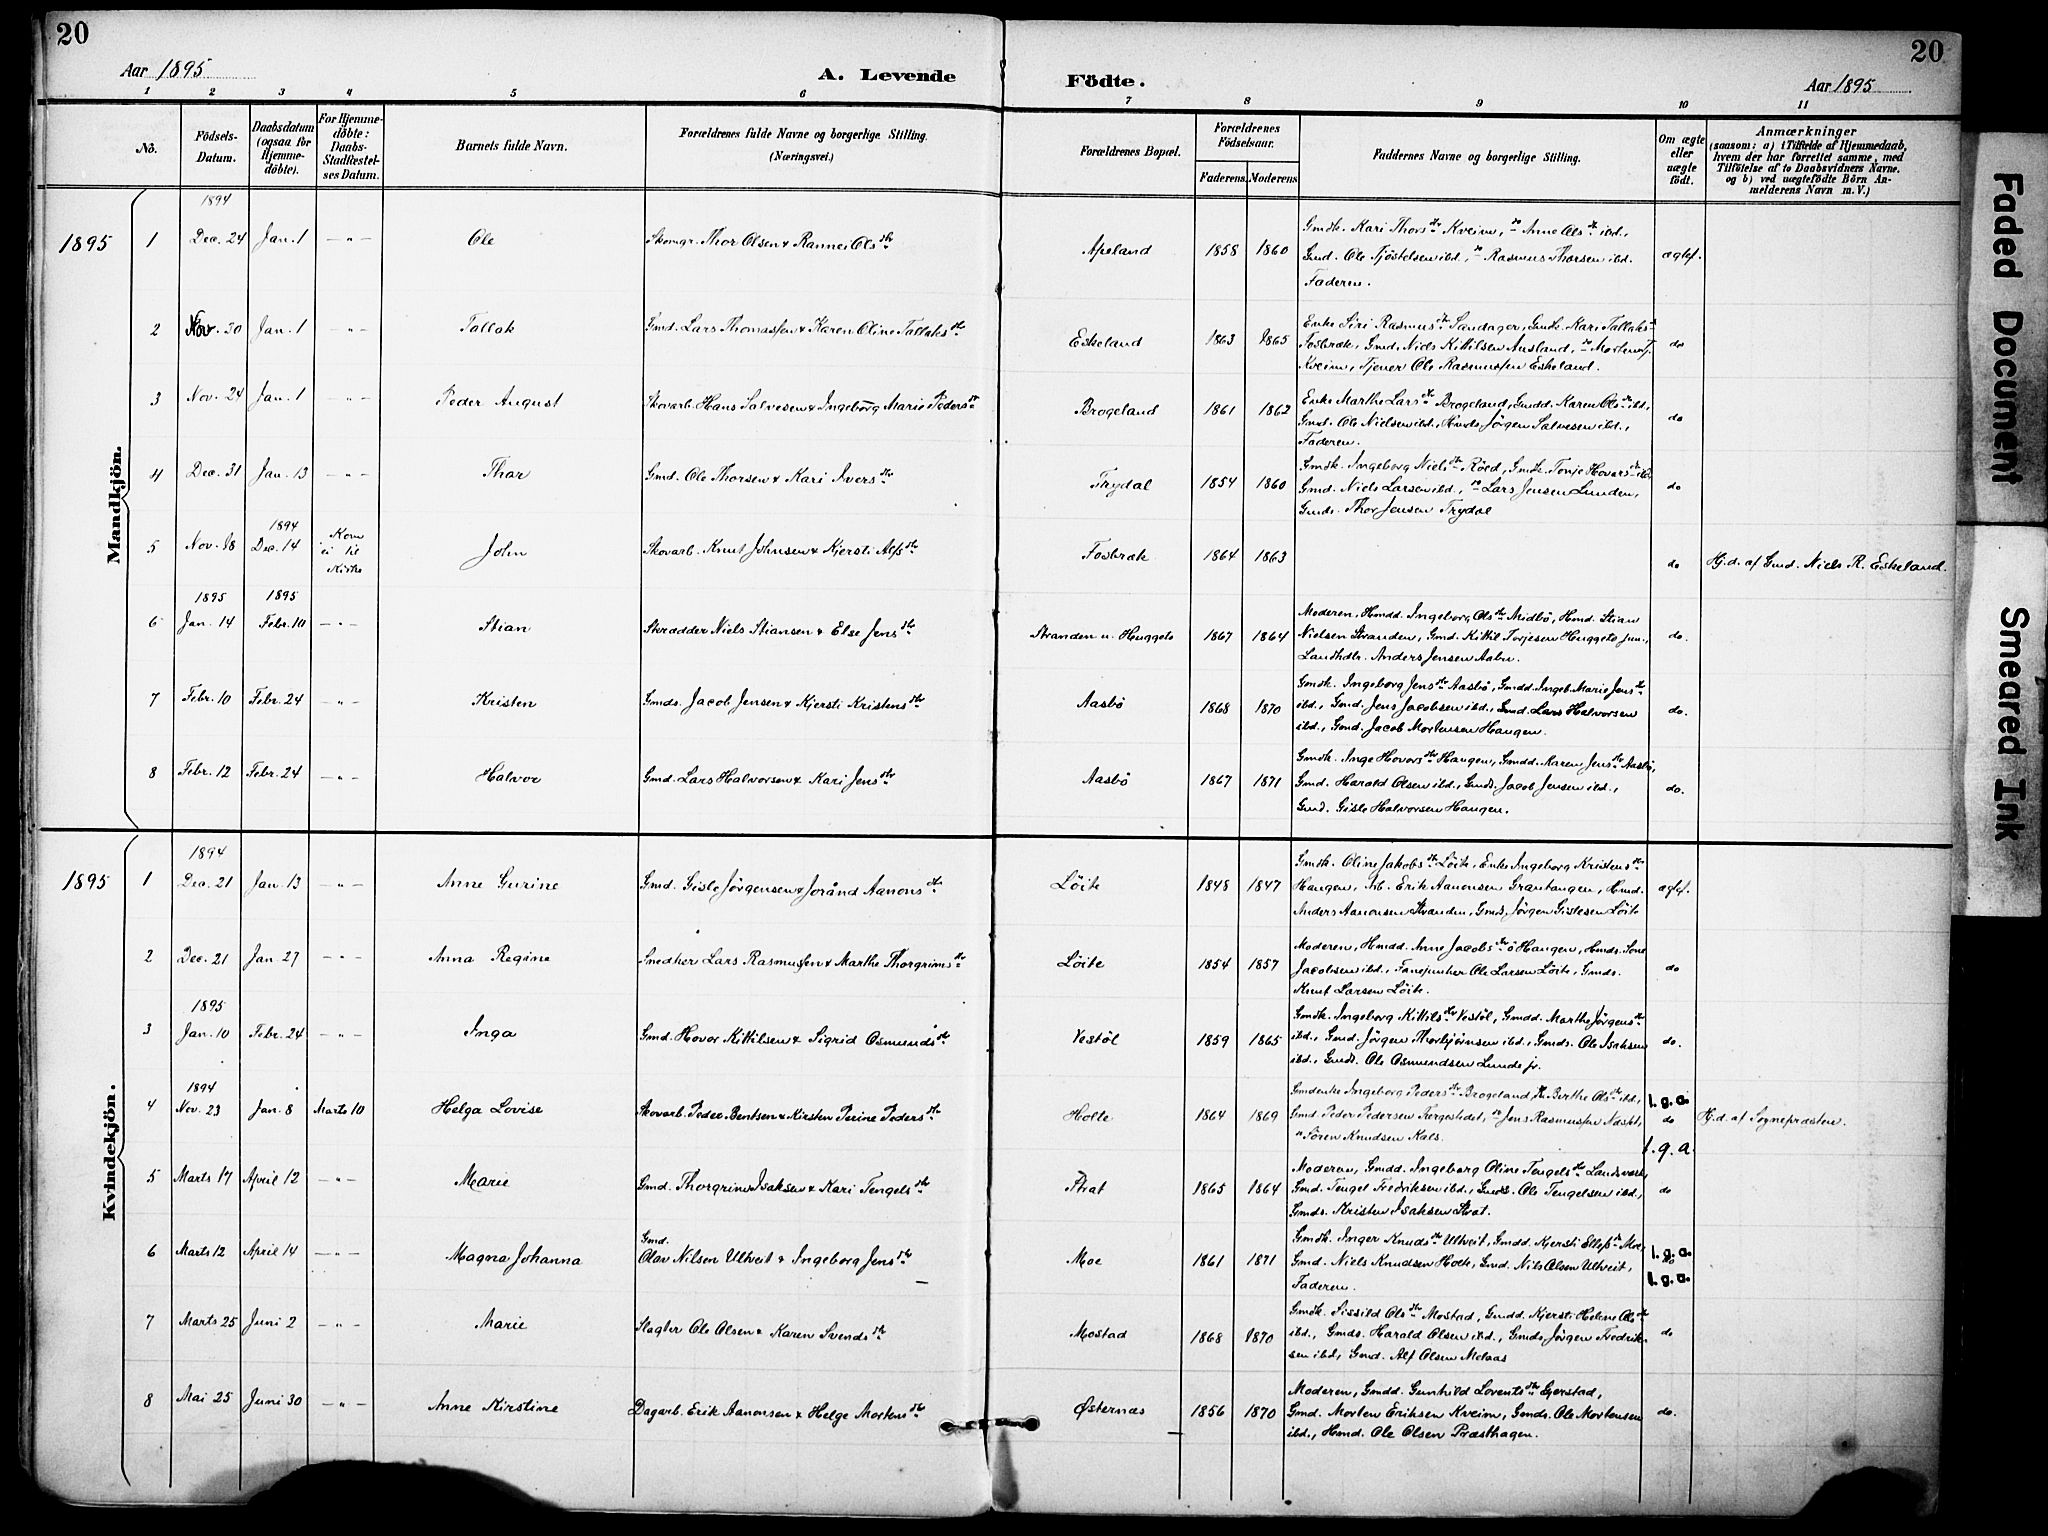 20
20
Aar 1895
A. Levende Födte.
Aar 1895
1 2 3 4 5 6 7 8 9 10 11
No.
Födsels-Datum.
Daabsdatum (ogsaa for Hjemme-döbte).
For Hjemme-döbte: Daabs-Stadfæstel-ses Datum.
Barnets fulde Navn.
Forældrenes fulde Navne og borgerlige Stilling. (Næringsvei.)
Forældrenes Bopæl.
Forældrenes Födselsaar.
Faderens. Moderens.
Faddernes Navne og borgerlige Stilling.
Om ægte eller uægte födt.
Anmærkninger
(saasom: a) i Tilfælde af Hjemmedaab, hvem der har forrettet samme, med Tilföielse af to Daabsvidners Navne. og b) ved uægtefödte Börn An-melderens Navn m. V.)
Mandkjön.
1894
1895 1 Dec. 24 Jan. 1 -„- Ole Skomgr. Thor Olsen & Rannei Olsdtr Apeland 1858 1860 Gmdk. Kari Thorsdtr Kveim, do Anne Olsdtr ibd.,
Gmd. Ole Tjöstelsen ibd., do Rasmus Thorsen ibd.
Faderen. ægtef.
2 Nov. 30 Jan. 1 -„- Tallak Gmd. Lars Thomassen & Karen Oline Tallaksdtr Eskeland 1863 1865 Enke Siri Rasmusdtr Sandager, Gmdk. Kari Tallaksd
Fosbræk, Gmd. Niels Kittilsen Ausland, do Morten T.
Kveim, Tjener Ole Rasmussen Eskeland. do
3 Nov. 24 Jan. 1 -„- Peder August Skovarb. Hans Salvesen & Ingeborg Marie Pedersdtr Brogeland 1861 1862 Enke Marthe Larsdtr Brogeland, Gmdd. Karen Olsdtr ibd,
Gmd. Ole Nielsen ibd., Hmds. Jörgen Salvesen ibd.,
Faderen. do
4 Dec. 31 Jan. 13 -„- Thor Gmd. Ole Thorsen & Kari Iversdtr Trydal 1854 1860 Gmdk. Ingeborg Nielsdtr Röed, Gmdk. Tonje Hovorsdtr ibd,
Gmd. Niels Larsen ibd., do Lars Jensen Lunden,
Gmds. Thor Jensen Trydal do
1894
5 Nov. 18 Dec. 14 Kom ei til Kirke John Skovarb. Knut Johnsen & Kjersti Alfsdtr Fosbræk 1864 1863 do Hj.d. af Gmd. Niels R. Eskeland.
1895 1895
6 Jan. 14 Febr. 10 -„- Stian Skrædder Niels Stiansen & Else Jensdtr Stranden u. Huggeto 1867 1864 Moderen, Hmdd. Ingeborg Olsdtr Midbö, Hmd. Stian
Nielsen Stranden, Gmd. Kittil Torjesen Huggeto jun.,
Landhdlr. Anders Jensen Aabu. do.
7 Febr. 10 Febr. 24 -„- Kristen Gmds. Jacob Jensen & Kjersti Kristensdtr Aasbö 1868 1870 Gmdk. Ingeborg Jensdtr Aasbö, Gmdd. Ingeb. Marie Jensdtr
ibd., Gmd. Jens Jacobsen ibd., Gmd. Lars Halvorsen
ibd., Gmd. Jacob Mortensen Haugen. do.
8 Febr. 12 Febr. 24 -„- Halvor Gmd. Lars Halvorsen & Kari Jensdtr Aasbö 1867 1871 Gmdk. Inge Hovorsdtr Haugen, Gmdd. Karen Jensdtr Aasbö,
Gmd. Harald Olsen ibd., Gmds. Jacob Jensen ibd.,
Gmd. Gisle Halvorsen Haugen. do.
Kvindekjön.
1894
1895 1 Dec. 21 Jan. 13 -„- Anne Gurine Gmd. Gisle Jörgensen & Jorånd Aanonsdtr Löite 1848 1847 Gmdk. Oline Jakobsdtr Löite, Enke Ingeborg Kristensdtr
Haugen, Arb. Erik Aanonsen Grautangen, Hmd.
Anders Aanonsen Stranden, Gmds. Jörgen Gislesen Löite ægtef.
2 Dec. 21 Jan. 27 -„- Anna Regine Smedker Lars Rasmussen & Marthe Thorgrimsdtr Löite 1854 1857 Moderen, Hmdd. Anne Jacobsdtr Haugen, Hmds. Tone
Jacobsen ibd., Fanejunker Ole Larsen Löite, Gmds.
Knut Larsen Löite. do
1895
3 Jan. 10 Febr. 24 -„- Inga Gmd. Hovor Kittilsen & Sigrid Osmundsdtr Vestöl 1859 1865 Gmdk. Ingeborg Kittilsdtr Vestöl, Gmdd. Marthe Jörgensdtr
ibd., Gmd. Jörgen Thorbjörnsen ibd., Gmds. Ole Isaksen
ibd., Gmds. Ole Osmundsen Lunde jr. do.
1894
4 Nov. 23 Jan. 8 Marts 10 Helga Lovise Skovarb. Peder Bentsen & Kirsten Perine Pedersdtr Holte 1864 1869 Gmdenke Ingeborg Pedersdtr Brogeland, Berthe Olsdtr ibd.,
Gmd. Peder Pedersen Fergestedet, do Jens Rasmussen Næset,
„ Sören Knudsen Kals. l. g. a. do Hj.d. af Sognepræsten.
l. g. a.
5 Marts 17 April 12 -„- Marie Gmd. Thorgrim Isaksen & Kari Tengelsdtr Strat 1865 1864 Moderen, Gmdd. Ingeborg Oline Tengelsdtr Landsverk,
Gmd. Tengel Fredriksen ibd., Gmds. Ole Tengelsen ibd.,
Gmds. Kristen Isaksen Strat. do
6 Marts 12 April 14 -„- Magna Johanna Gmd. Olav Nilsen Ulltveit & Ingeborg Jensdtr Moe 1861 1871 Gmdk. Inger Knudsdtr Ulltveit, Gmdd. Kjersti Ellefsdtr Moe,
Gmd. Niels Knudsen Holte, Gmd. Nils Olsen Ulltveit,
Faderen. l. g. a. do l. g. a.
7 Marts 25 Juni 2 -„- Marie Slagter Ole Olsen & Karen Svendsdtr Mostad 1868 1870 Gmdk. Sissild Olsdtr Mostad, Gmdd. Kjersti Helene Olsdtr
ibd., Gmds. Harald Olsen ibd., Gmds. Jörgen Fredrik-
sen ibd., Gmd. Alf Olsen Melaas do
8 Mai 25 Juni 30 -„- Anne Kirstine Dagarb. Erik Aanonsen & Helge Mortensdtr Østernæs 1856 1870 Moderen, Gmdd. Gunhild Loventsdtr Egerstad,
Gmd. Morten Eriksen Kveim, Gmds. Ole Mortensen
ibd., Hmd. Ole Olsen Præsthagen. do.
Faded Document
Smeared Ink